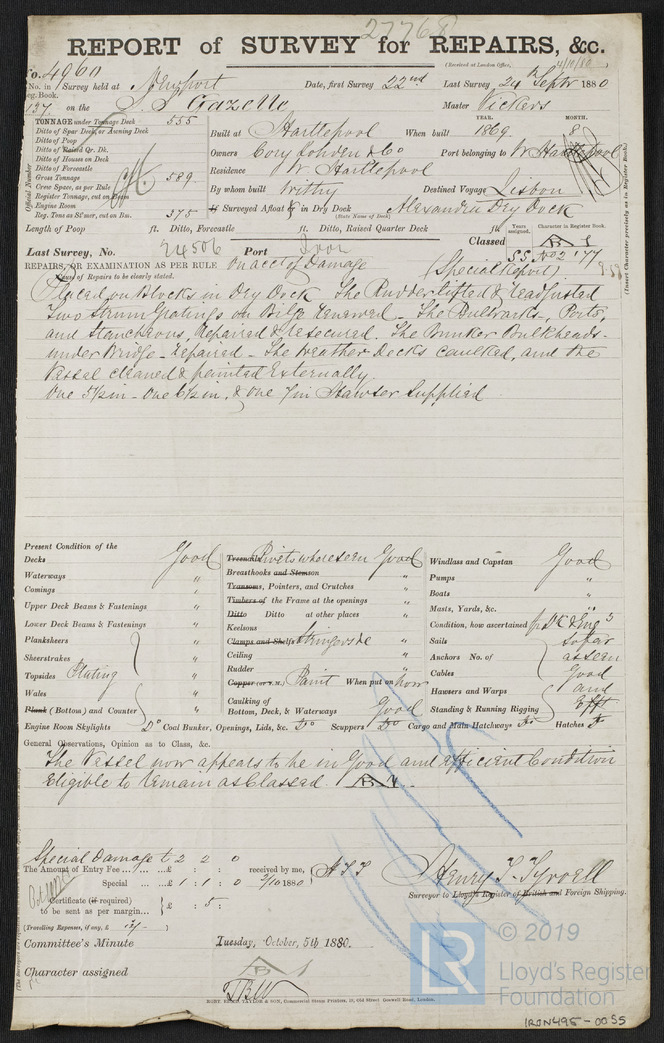 27768
REPORT of SURVEY for REPAIRS, &c.
(Received at London Office, 4/10/80)
No. 4960
No. in Survey held at Newport Date, first Survey 22nd Last Survey 24th Septr 1880
Reg. Book.
137 on the S.S. Gazelle Master Vickers
TONNAGE under Tonnage Deck 555
Ditto of Spar Deck, or Awning Deck
Ditto of Poop
Ditto of Raised Qr. Dk.
Ditto of Houses on Deck
Ditto of Forecastle
Gross Tonnage 589
Crew Space, as per Rule
Register Tonnage, cut on Beam
Engine Room
Reg. Tons as Stmer, cut on Bm. 375
Official Number
Built at Hartlepool When built YEAR. 1869 MONTH. 8
Owners Port belonging to W. Hartlepool
Residence W. Hartlepool
By whom built Withy Destined Voyage Lisbon
If Surveyed Afloat or in Dry Dock Alexandra Dry Dock
(State Name of Dock)
Length of Poop ft. Ditto, Forecastle ft. Ditto, Raised Quarter Deck ft.
Years assigned. Character in Register Book.
(Insert Character precisely as in Register Book.)
Last Survey, No. 24506 Port Classed A 1
SS No 2 '77
REPAIRS, OR EXAMINATION AS PER RULE on acct of Damage (Special Report)
Nature of Repairs to be clearly stated.
Placed on Blocks in Dry Dock The Rudder lifted & readjusted
Two Strum Gratings on Bilge renewed - The Bulwarks, Ports,
and Stancheons, Repaired & resecured. The Bunker Bulkheads
under Bridge - repaired - The Weather Decks caulked, and the
Vessel cleaned & painted Externally
One 5½ in - One 6½ in, & one 7 in Hawser Supplied
Present Condition of the
Decks Good
Waterways "
Comings "
Upper Deck Beams & Fastenings "
Lower Deck Beams & Fastenings "
Planksheers "
Sheerstrakes "
Topsides Plating "
Wales "
Plank (Bottom) and Counter "
Treenails Rivets where seen Good
Breasthooks and Stemson "
Transoms, Pointers, and Crutches "
Timbers of the Frame at the openings "
Ditto Ditto at other places "
Keelsons "
Clamps and Shelfs Stringers &c "
Ceiling "
Rudder "
Copper (or Y.M.) Paint When put on now
Caulking of
Bottom, Deck, & Waterways Good
Windlass and Capstan Good
Pumps "
Boats "
Masts, Yards, &c. "
Condition, how ascertained
Sails so far
Anchors No. of as seen
Cables Good
Hawsers and Warps and
Standing & Running Rigging Efft
Engine Room Skylights Do Coal Bunker, Openings, Lids, &c. Do Scuppers Do Cargo and Main Hatchways Do Hatches Do
General Observations, Opinion as to Class, &c.
The Vessel now appears to be in Good and efficient Condition
Eligible to remain as Classed. A 1
Special Damage £ 2 : 2 : 0
The Amount of Entry Fee ... £ : : received by me,
Special ... £ 1 : 1 : 0 2/10 1880
Certificate (if required) £ : 5 :
to be sent as per margin...
(Travelling Expenses, if any, £ )
Henry T. Tyrrell
Surveyor to Lloyd's Register of British and Foreign Shipping.
Committee's Minute Tuesday, October, 5th 1880.
Character assigned A 1
TAYLOR & SON, Commercial Steam Printers, 19, Old Street Goswell Road, London.
© 2019
LR
Lloyd's Register
Foundation
IRON495-0055